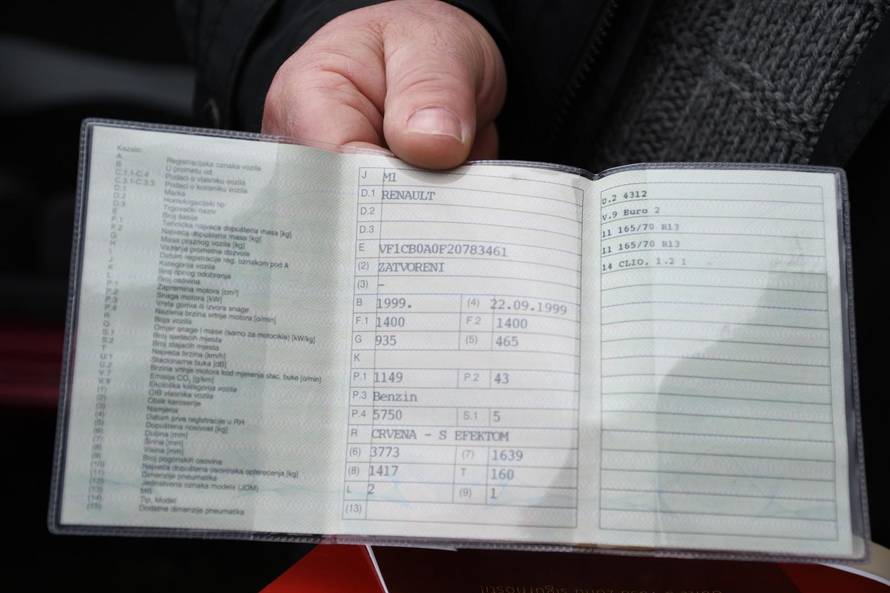 Kazalo:
A Registracijska oznaka vozila
B U prometu od
C.1.1-C.4 Podaci o vlasniku vozila
C.3.1-C.3.3 Podaci o korisniku vozila
D.1 Marka
D.2 Homologacijski tip
D.3 Trgovački naziv
E Broj šasije
F.1 Tehnička najveća dopuštena masa [kg]
F.2 Najveća dopuštena masa [kg]
G Masa praznog vozila [kg]
H Važenje prometne dozvole
I Datum registracije reg. oznakom pod A
J Kategorija vozila
K Broj tipnog odobrenja
L Broj osovina
P.1 Zapremina motora [cm³]
P.2 Snaga motora [kW]
P.3 Vrsta goriva ili izvora snage
P.4 Nazivna brzina vrtnje motora [o/min]
R Boja vozila
Q Omjer snage i mase (samo za motocikle) [kW/kg]
S.1 Broj sjedećih mjesta
S.2 Broj stajaćih mjesta
T Najveća brzina [km/h]
U.1 Stacionarna buka [dB]
U.2 Brzina vrtnje motora kod mjerenja stac. buke [o/min]
V.7 Emisija CO₂ [g/km]
V.9 Ekološka kategorija vozila
(1) OIB vlasnika vozila
(2) Oblik karoserije
(3) Namjena
(4) Datum prve registracije u RH
(5) Dopuštena nosivost [kg]
(6) Duljina [mm]
(7) Širina [mm]
(8) Visina [mm]
(9) Broj pogonskih osovina
(10) Najveća dopuštena osovinska opterećenja [kg]
(11) Dimenzije pneumatika
(12) Jedinstvena oznaka modela (JOM)
(13) MB
(14) Tip, Model
(15) Dodatne dimenzije pneumatika
J M1
D.1 RENAULT
D.2
D.3
E VF1CB0A0F20783461
(2) ZATVORENI
(3) -
B 1999. (4) 22.09.1999
F.1 1400 F.2 1400
G 935 (5) 465
K
P.1 1149 P.2 43
P.3 Benzin
P.4 5750 S.1 5
R CRVENA - S EFEKTOM
(6) 3773 (7) 1639
(8) 1417 T 160
L 2 (9) 1
(13)
U.2 4312
V.9 Euro 2
11 165/70 R13
11 165/70 R13
14 CLIO, 1.2 i